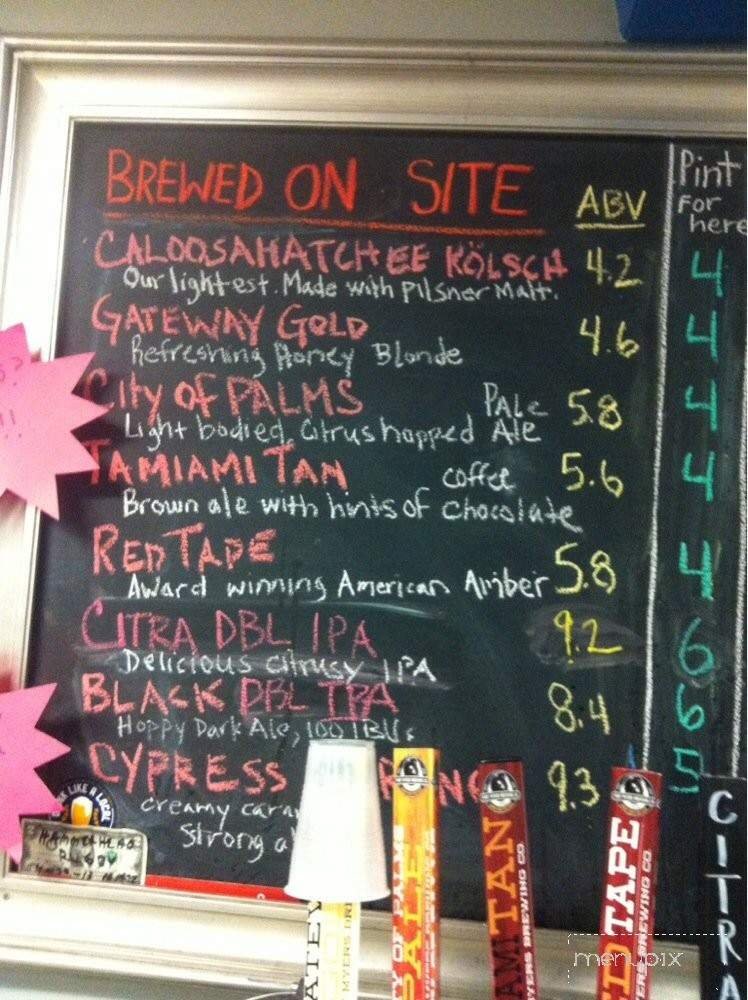 BREWED ON SITE
ABV
Pint
For
here
CALOOSAHATCHEE KÖLSCH 4.2 4
Our lightest. Made with Pilsner Malt.
GATEWAY GOLD 4.6 4
Refreshing Honey Blonde
City of PALMS Pale 5.8 4
Light bodied, Citrus hopped Ale
TAMIAMI TAN coffee 5.6 4
Brown ale with hints of chocolate
RED TAPE 5.8 4
Award winning American Amber
CITRA DBL IPA 9.2 6
Delicious citrusy IPA
BLACK DBL IPA 8.4 6
Hoppy Dark Ale, 100 IBUs
CYPRESS 9.3 5
creamy
Strong
K LIKE A LOCAL
HAMMERHEAD
ATEW
MYERS
Y OF PALMS
ALE
AMI TAN
YERS BREWING CO
D TAPE
YERS BREWING CO
CITRA
menupix